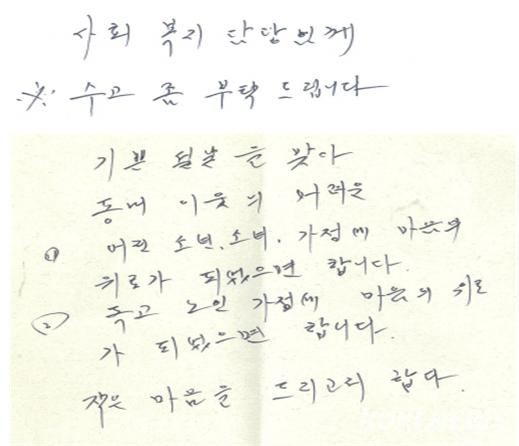 사회 복지 담당인께
※ 수고 좀 부탁 드립니다
기쁜 설날을 맞아
동내 이웃의 어려운
① 어린 소년.소녀. 가정에 마음의
위로가 되었으면 합니다.
② 독고 노인 가정에 마음의 위로
가 되었으면 합니다.
작은 마음을 드리고리 합다.